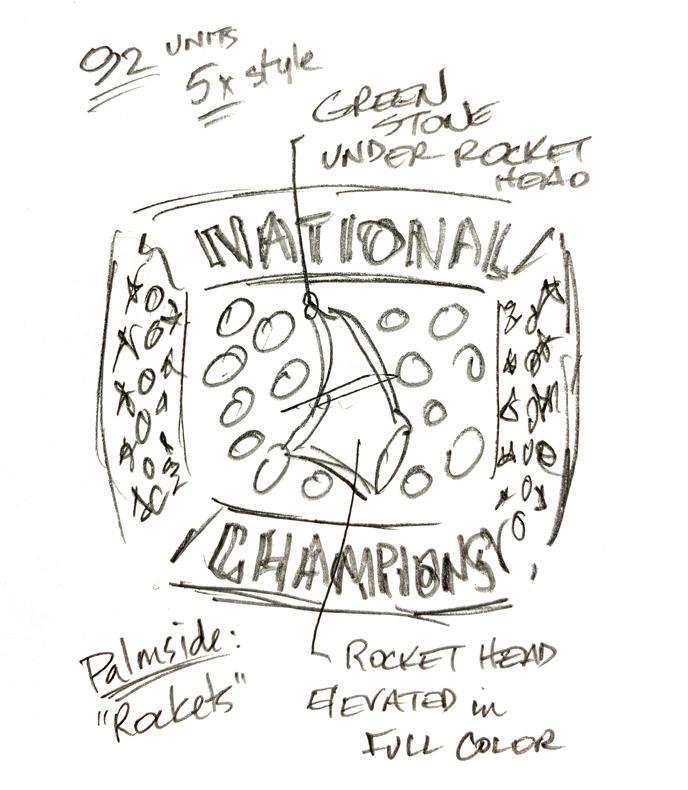 92 UNITS
5x style
GREEN
STONE
UNDER ROCKET
HEAD
NATIONAL
CHAMPIONS
Palmside:
"Rockets"
ROCKET HEAD
ELEVATED in
FULL COLOR